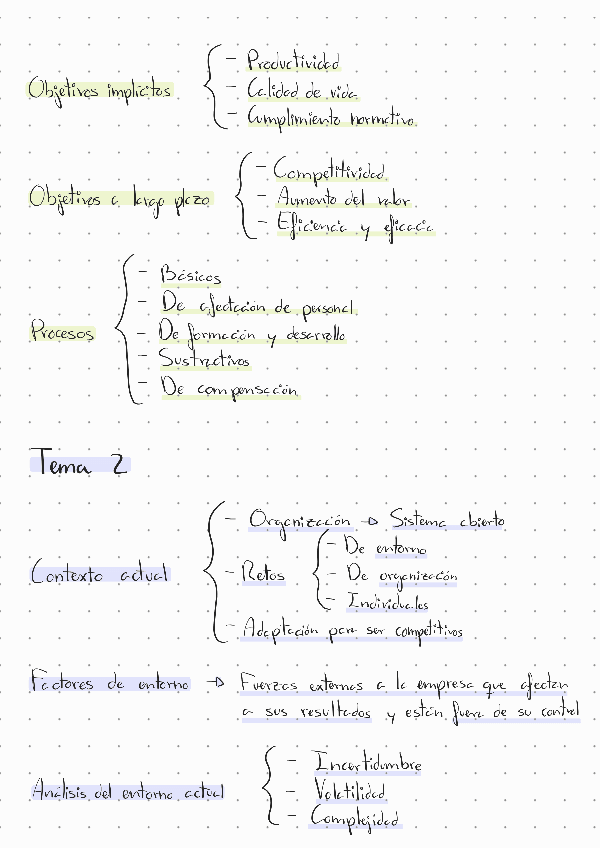 Objetivos implícitos
- Productividad
- Calidad de vida
- Cumplimiento normativo
Objetivos a largo plazo
- Competitividad
- Aumento del valor
- Eficiencia y eficacia
Procesos
- Básicos
- De afectación de personal
- De formación y desarrollo
- Sustractivos
- De compensación
Tema 2
Contexto actual
- Organización → Sistema abierto
- Retos
- De entorno
- De organización
- Individuales
- Adaptación para ser competitivos
Factores de entorno → Fuerzas externas a la empresa que afectan
a sus resultados y están fuera de su control
Análisis del entorno actual
- Incertidumbre
- Volatilidad
- Complejidad